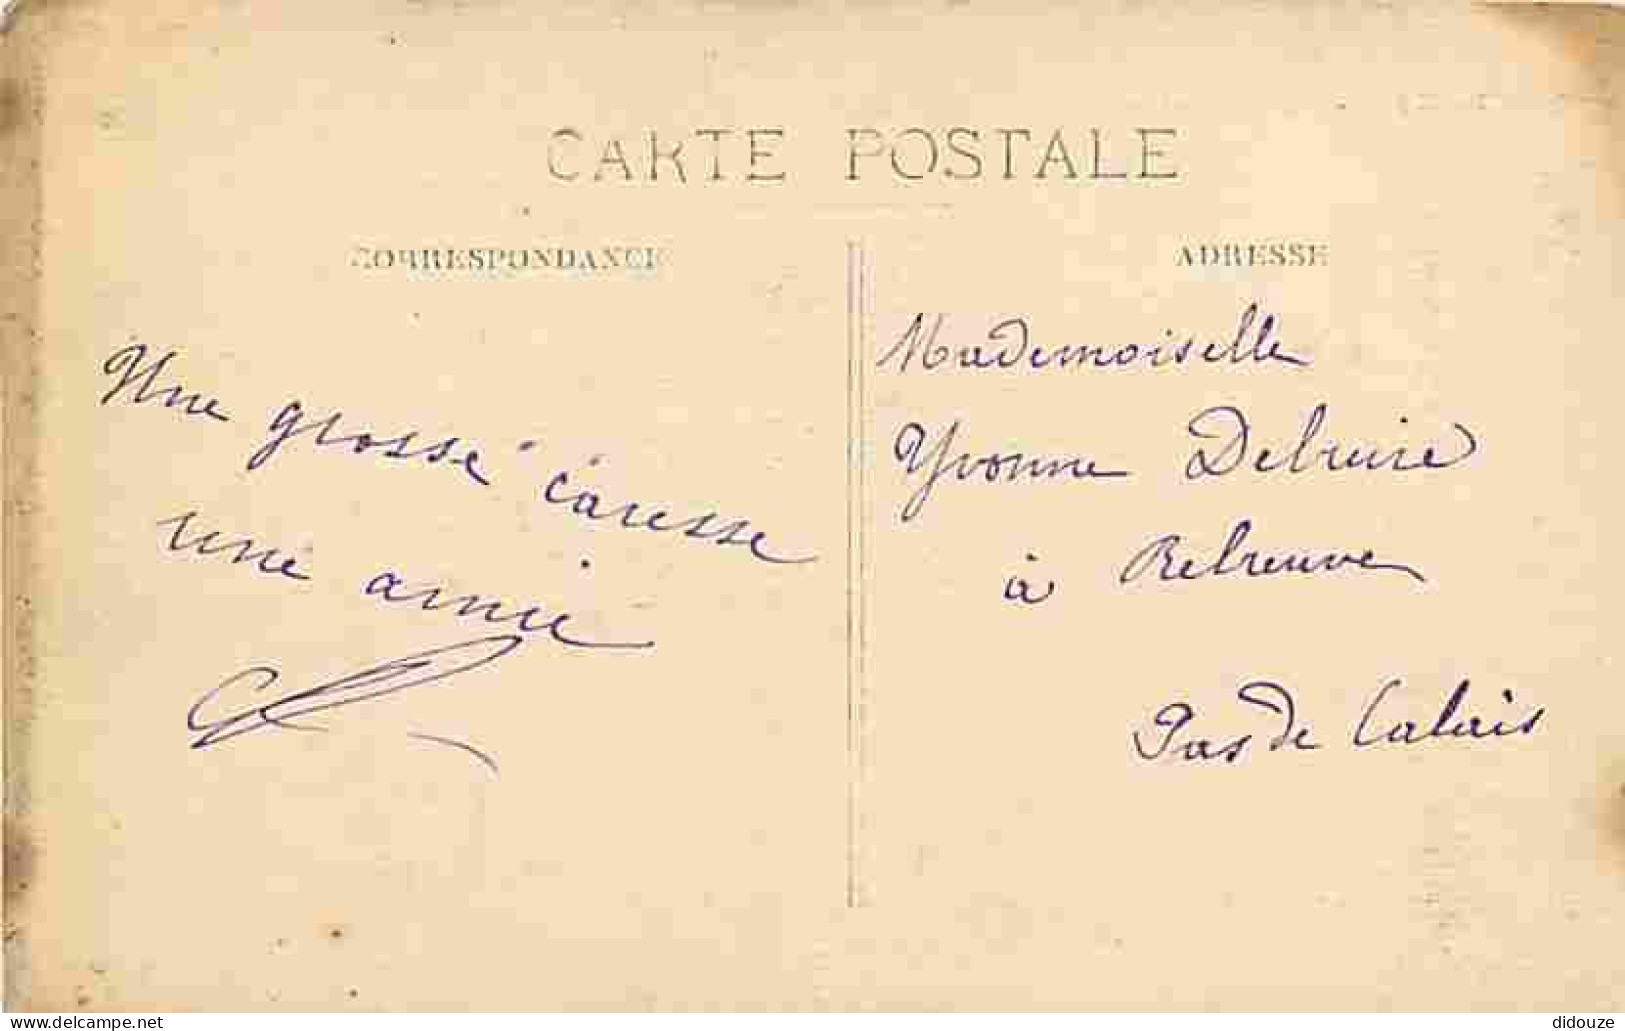 CARTE POSTALE
CORRESPONDANCE
ADRESSE
Une grosse caresse
une amie
Mademoiselle
Yvonne Delruie
à Rebreuve
Pas de Calais
didouze